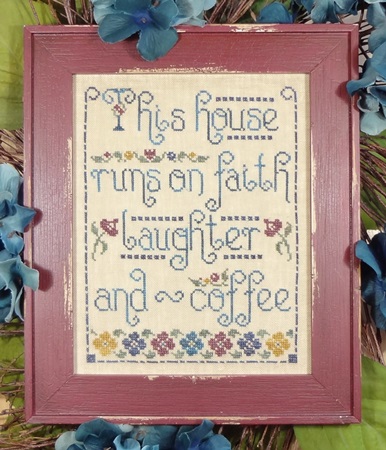 This house
runs on faith
laughter
and ~ coffee